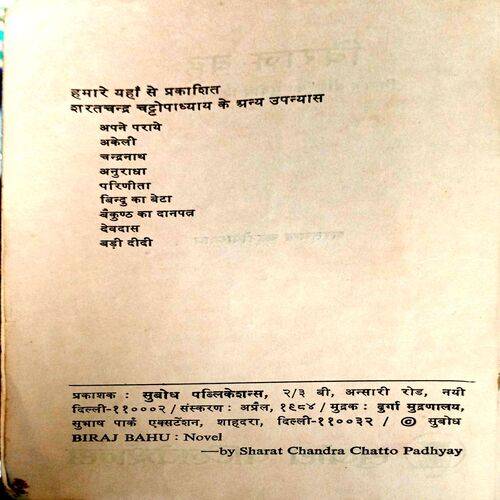 हमारे यहाँ से प्रकाशित
शरतचन्द्र चट्टोपाध्याय के अन्य उपन्यास
अपने पराये
अकेली
चन्द्रनाथ
अनुराधा
परिणीता
बिन्दु का बेटा
बैकुण्ठ का दानपत्र
देवदास
बड़ी दीदी
प्रकाशक : सुबोध पब्लिकेशन्स, २/३ बी, अन्सारी रोड, नयी
दिल्ली-११०००२ / संस्करण : अप्रैल, १९८४ / मुद्रक : दुर्गा मुद्रणालय,
सुभाष पार्क एक्सटेंशन, शाहदरा, दिल्ली-११००३२ / © सुबोध
BIRAJ BAHU : Novel
—by Sharat Chandra Chatto Padhyay